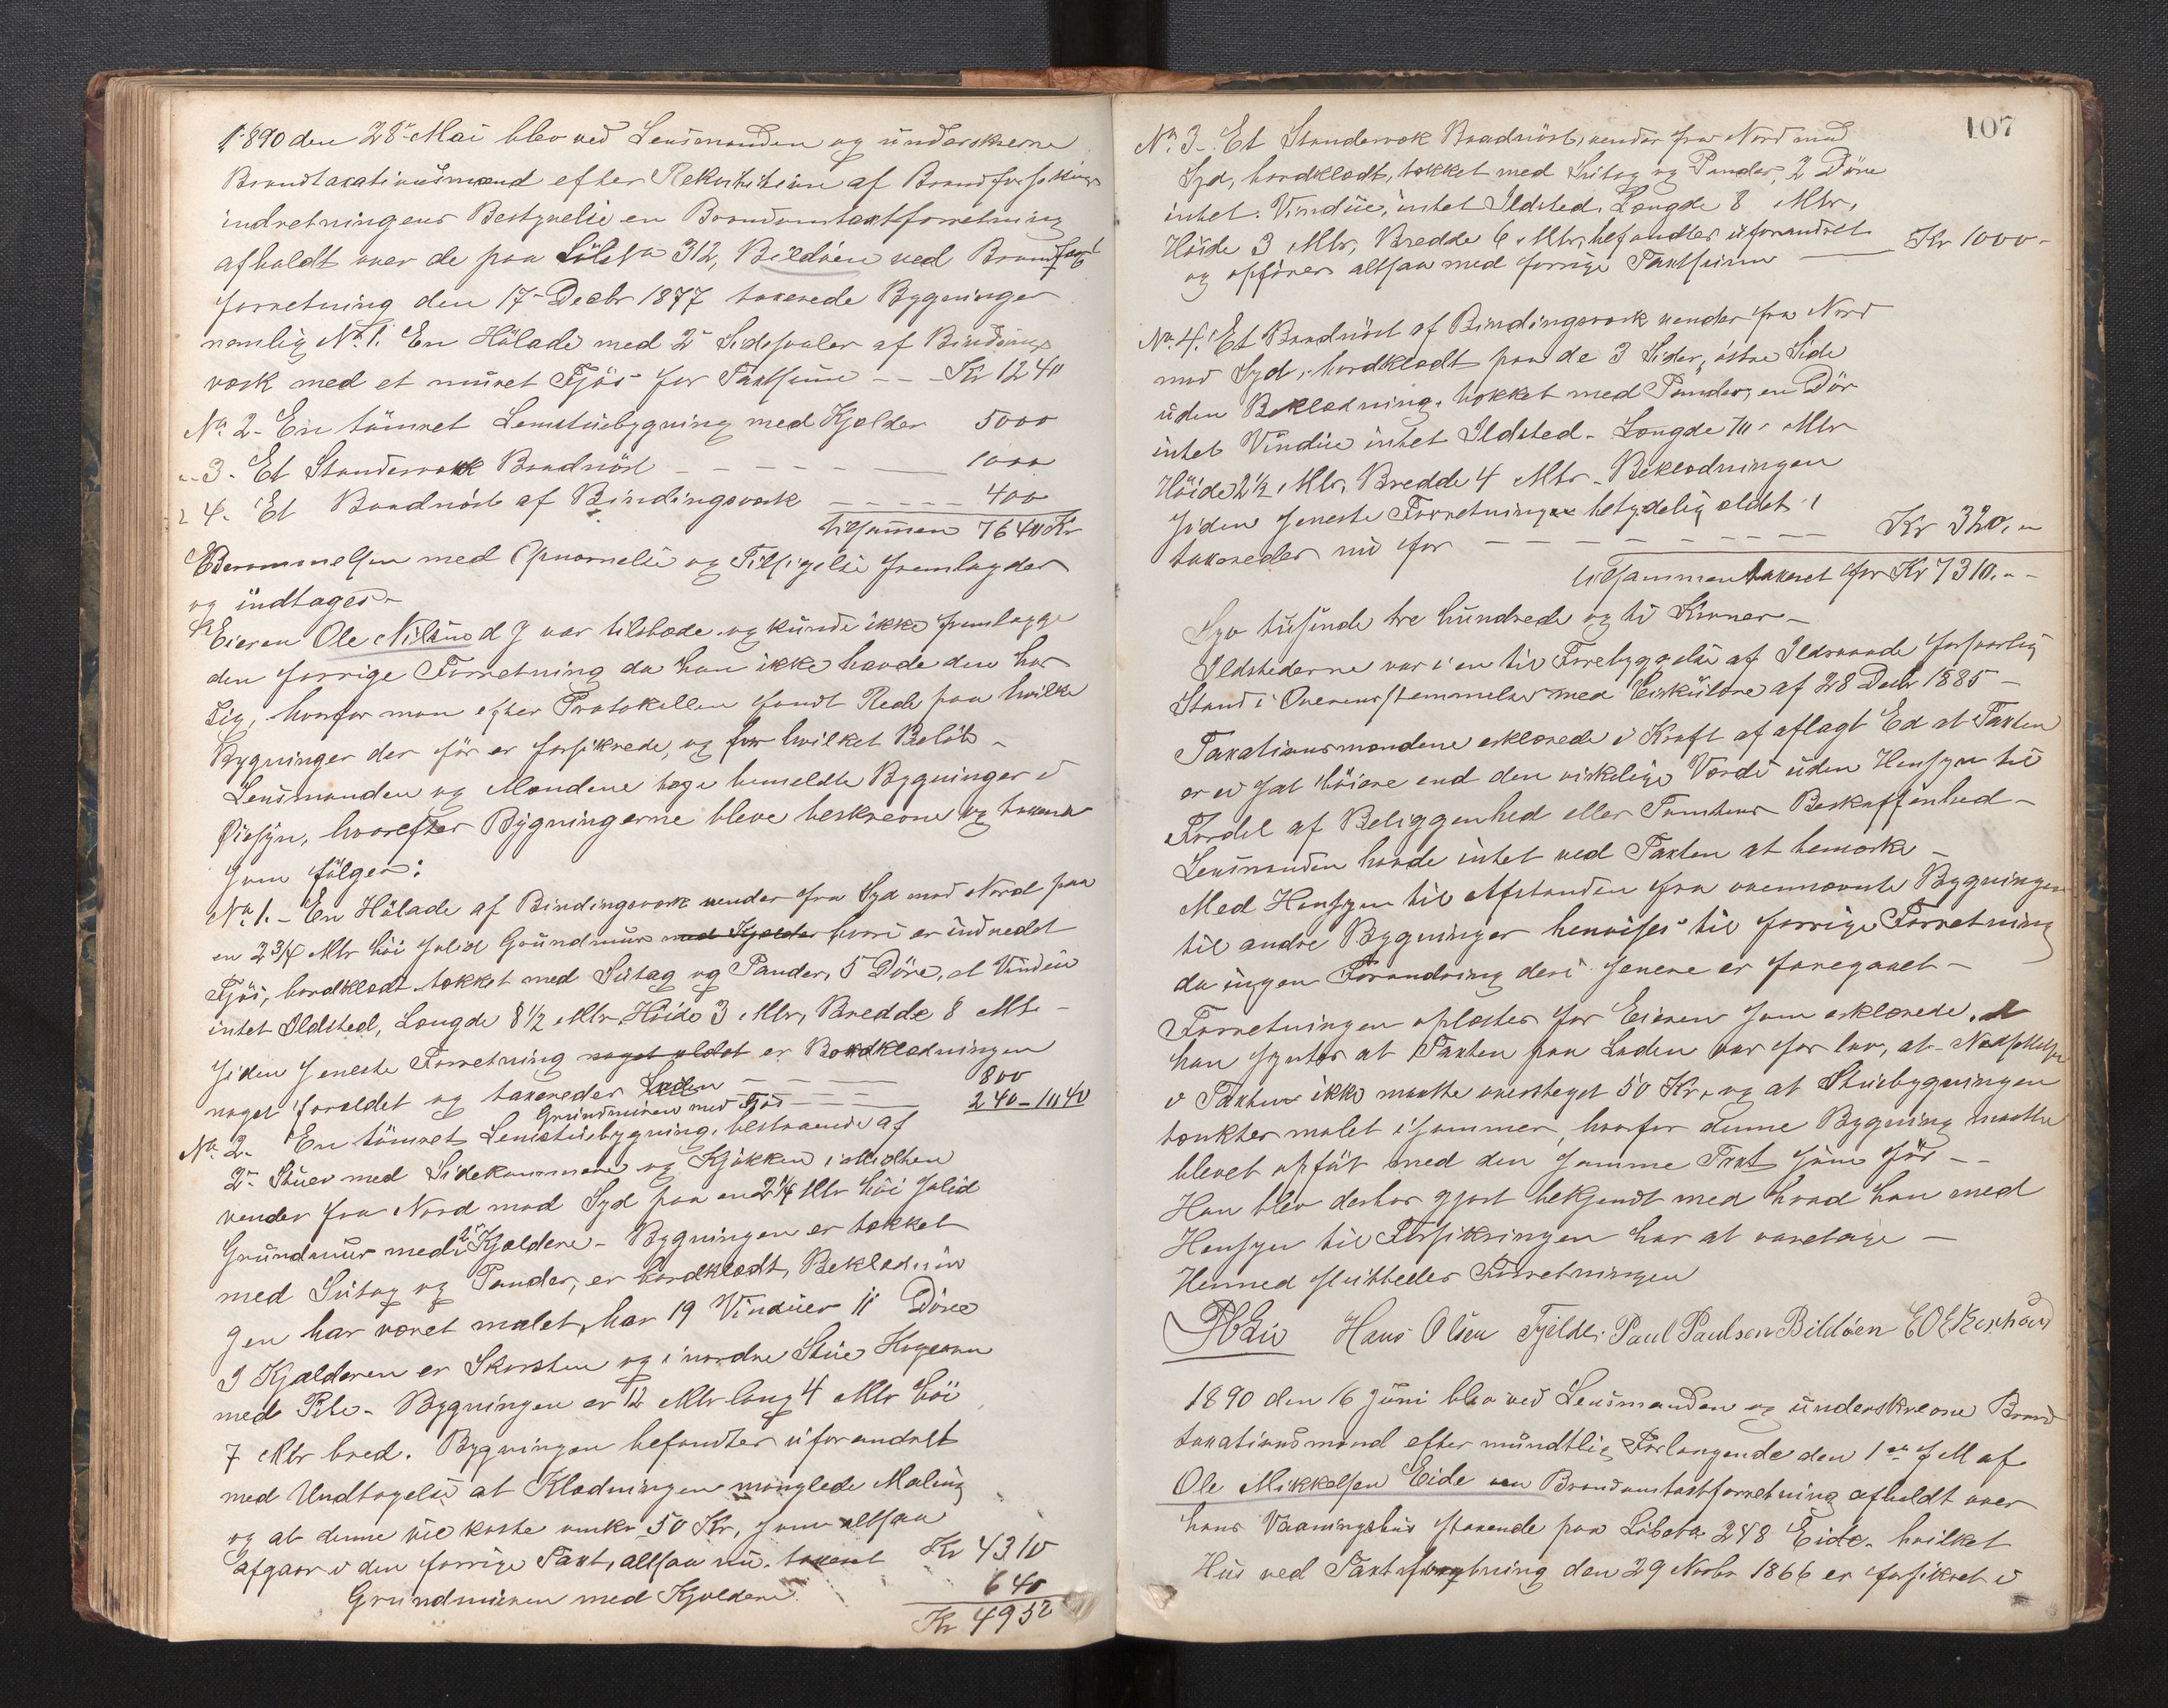 1890 den 28de Mai blev ved Lensmanden og underskrevne
Brandtaxationsmænd efter Rekvisition af Brandforsikrings
indretningens Bestyrelse en Brandomtaxtforretning
afholdt over de paa Løbe No 312, Bildøen ved Brandtaxt
forretning den 17de Decbr 1877 taxerede Bygninger
nemlig No 1. En Hølade med 2de Sidesvaler af Bindings
værk med et muret Fjøs for Taxtsum - - Kr 1240
No 2. En tømret Lemstuebygning med Kjelder 5000
" 3. Et Stavværk Baadnøst - - - - 1000
" 4. Et Baadnøst af Bindingsværk - - - - 400
tilsammen 7640 Kr
Berammelsen med Opnævnelse og Tilsigelse fremlagdes
og indtages.
Eieren Ole Nilsen d y var tilstede og kunde ikke fremlægge
den forrige Forretning da han ikke havde den hos
sig, hvorfor man efter Protokollen fandt Rede paa hvilke
Bygninger der før er forsikrede, og for hvilket Beløb -
Lensmanden og Mændene toge bemeldte Bygninger i
Øiesyn, hvorefter Bygningerne bleve beskrevne og taxerede
som følger:
No 1. - En Hølade af Bindingsværk vender fra Syd mod Nord paa
en 2 3/4 Mtr høi solid Grundmur med Kjelder hvori er indredet
Fjøs, bordklædt tækket med Sutag og Pander, 5 Døre, et Vindue
intet Ildsted, Længde 8 1/2 Mtr. Høide 3 Mtr, Bredde 8 Mtr -
Siden seneste Forretning noget ældet er Bordklædningen
noget forældet og taxeredes Laden - - - 800
Grundmuren med Fjøs - - - 240 - 1040
No 2. En tømret Lemstuebygning, bestaaende af
2de Stuer med Sidekammere og Kjøkken i Midten
vender fra Nord mod Syd paa en 2 1/4 Mtr høi solid
Grundmur med 2de Kjeldere - Bygningen er tækket
med Sutag og Pander, er bordklædt, Beklædnin
gen har været malet, har 19 Vinduer 11 Døre
I Kjelderen er Skorsten og i nordre Stue Kogeovn
med Pibe - Bygningen er 12 Mtr lang 4 Mtr høi
7 Mtr bred. Bygningen befandtes uforandret
med Undtagelse at Klædningen manglede Maling
og at denne vil koste omkr 50 Kr, som altsaa
afgaar i den forrige Taxt, altsaa nu taxeret Kr 4310
Grundmuren med Kjeldere 640
Kr 4950
107
No 3. Et Stavværk Baadnøst, vender fra Nord mod
Syd, bordklædt, tækket med Sutag og Pander, 2 Døre
intet Vindue, intet Ildsted. Længde 8 Mtr,
Høide 3 Mtr, Bredde 6 Mtr, befandtes uforandret
og opføres altsaa med forrige Taxtsum - Kr 1000 -
No 4. Et Baadnøst af Bindingsværk vender fra Nord
mod Syd, bordklædt paa de 3 Sider, østre Side
uden Beklædning, tækket med Pander, en Dør
intet Vindue intet Ildsted. Længde 7 Mtr
Høide 2 1/2 Mtr, Bredde 4 Mtr - Beklædningen
siden seneste Forretning betydelig ældet
taxeredes nu for - - - - - - - Kr 320, "
tilsammen taxeret for Kr 7310. - -
Syv tusinde tre hundrede og ti Kroner -
Ildstederne var i en til Forebyggelse af Ildsvaade forsvarlig
Stand i Overensstemmelse med Cirkulære af 28 Decbr 1885 -
Taxationsmændene erklærede i Kraft af aflagt Ed at Taxten
er ei sat høiere end den virkelige Værdi uden Hensyn til
Fordel af Beliggenhed eller Tomtens Beskaffenhed -
Lensmanden havde intet ved Taxten at bemærke -
Med Hensyn til Afstanden fra ovennævnte Bygninger
til andre Bygninger henvises til forrige Forretning
da ingen Forandring deri senere er foregaaet -
Forretningen oplæstes for Eieren som erklærede, at
han syntes at Taxten paa Laden var for lav, at Nedsættelse
i Taxten ikke maatte oversteget 50 Kr, og at Stuebygningen
tænktes malet i Sommer, hvorfor denne Bygning maatte
blevet opført med den samme Taxt som før - -
Han blev derhos gjort bekjendt med hvad han med
Hensyn til Forsikringen har at varetage -
Hermed sluttedes Forretningen
Hans Olsen Fjelde. Paul Paulsen Bildøen
1890 den 16 Juni blev ved Lensmanden og underskrevne Brand
taxationsmænd efter mundtlig Forlangende den 1ste d M af
Ole Mikkelsen Eide en Brandomtaxtforretning afholdt over
hans Vaaningshus staaende paa Løbe No 248 Eide, hvilket
Hus ved Taxtforretning den 29 Novbr 1866 er forsikret i